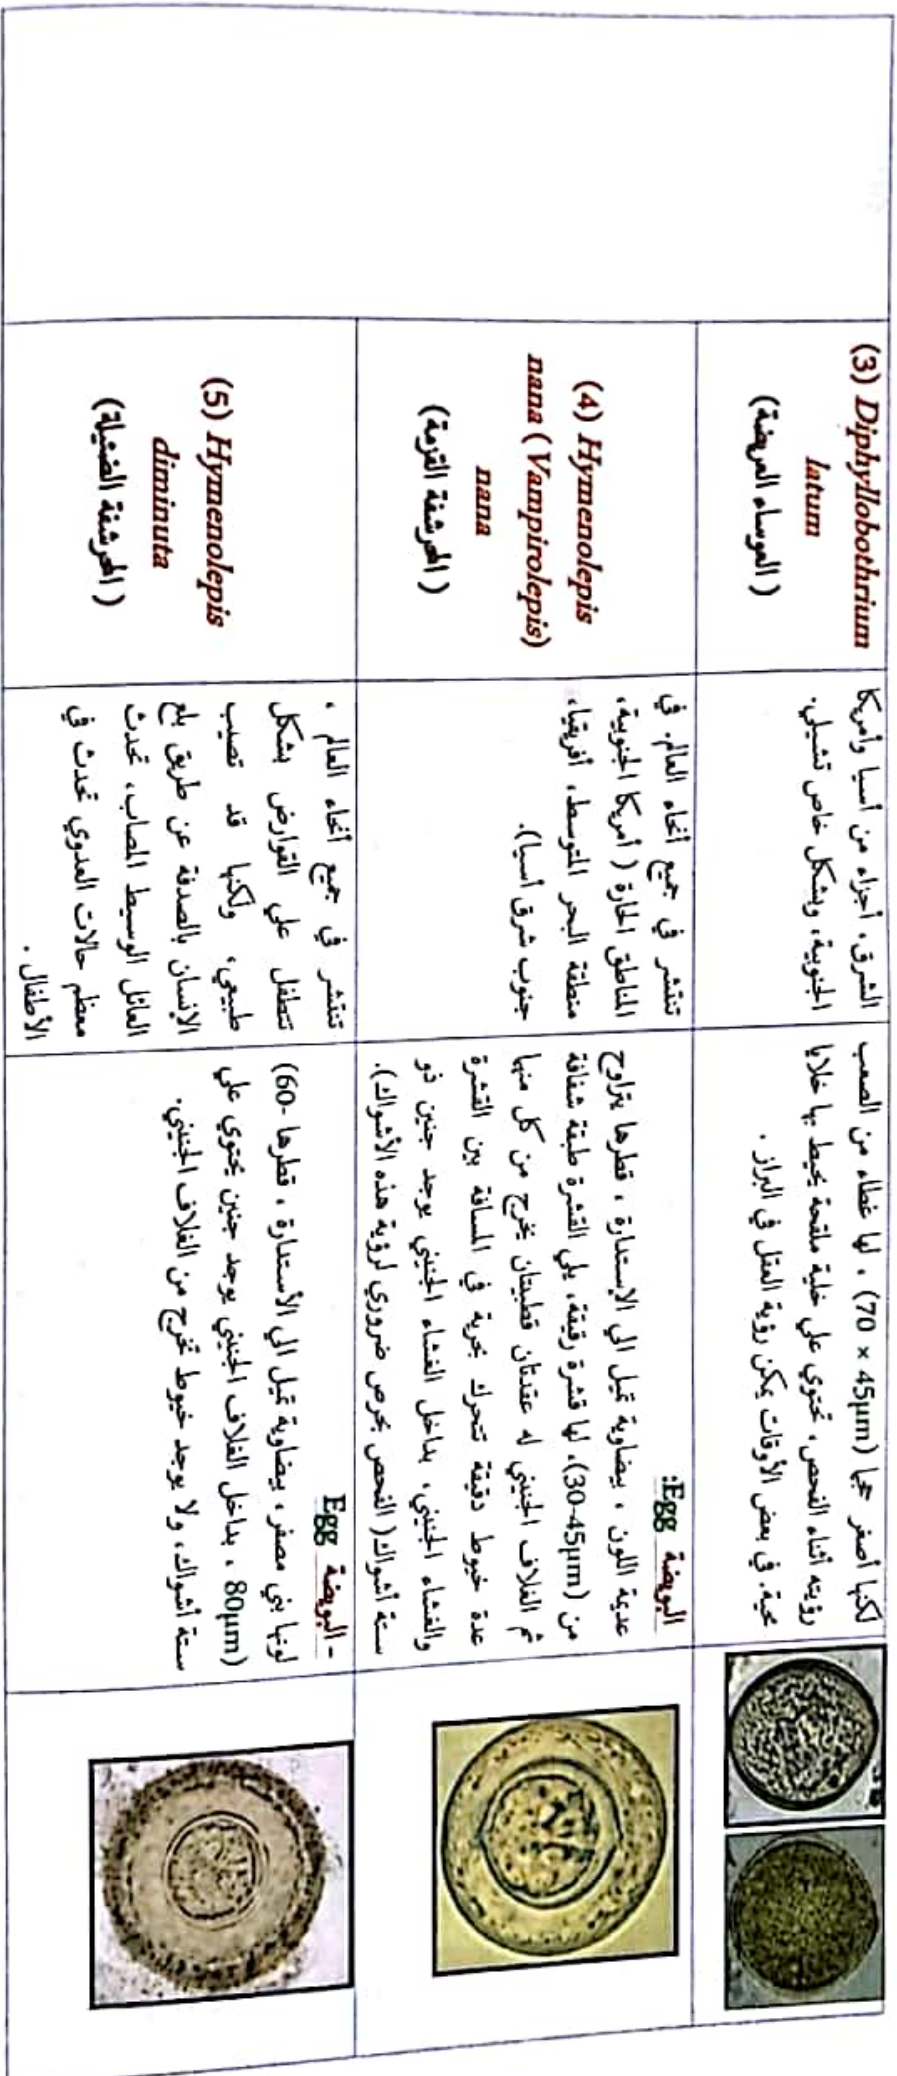 (3) Diphyllobothrium
latum
(العوساء العريضة)
الشرق، أجزاء من أسيا وأمريكا
الجنوبية، وبشكل خاص تشيلي.
لكنها أصغر حجما (70 × 45µm) ، لها غطاء من الصعب
رؤيته أثناء الفحص، تحتوي علي خلية ملقحة يحيط بها خلايا
محية. في بعض الأوقات يمكن رؤية العقل في البراز .
(4) Hymenolepis
nana ( Vampirolepis)
nana
( الحرشفة القزمة)
تنتشر في جميع أنحاء العالم. في
المناطق الحارة ( أمريكا الجنوبية،
منطقة البحر المتوسط، أفريقيا،
جنوب شرق أسيا).
البويضة Egg:
عديمة اللون ، بيضاوية تميل الي الإستدارة ، قطرها يتراوح
من (30-45µm)، لها قشرة رقيقة، يلي القشرة طبقة شفافة
ثم الغلاف الجنيني له عقدتان قطبيتان يخرج من كل منها
عدة خيوط دقيقة تتحرك بحرية في المسافة بين القشرة
والغشاء الجنيني، بداخل الغشاء الجنيني يوجد جنين ذو
ستة أشواك( الفحص بحرص ضروري لرؤية هذه الأشواك).
(5) Hymenolepis
diminuta
( الحرشفة الضئيلة)
تنتشر في جميع أنحاء العالم ،
تتطفل علي القوارض بشكل
طبيعي، ولكنها قد تصيب
الإنسان بالصدفة عن طريق بلع
العائل الوسيط المصاب، تحدث
معظم حالات العدوي تحدث في
الأطفال .
- البويضة Egg
لونها بني مصفر ، بيضاوية تميل الي الأستدارة ، قطرها -60)
80µm) ، بداخل الغلاف الجنيني يوجد جنين يحتوي علي
ستة أشواك، ولا يوجد خيوط تخرج من الغلاف الجنيني.